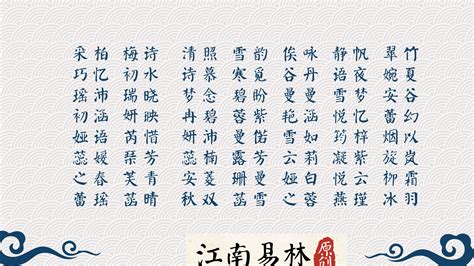 采柏 梅诗 清照 雪韵 俟咏 静帆 翠竹
巧忆 初水 诗慕 寒觅 谷丹 语夜 婉夏
瑶沛 瑞晓 梦念 碧盼 曼曼 雪梦 安谷
初涵 妍映 冉碧 蓉紫 涵 悦忆 蕾幻
娅语 芮惜 清楠 曼偌 妍如 筠梓 烟以
蕊媛 芳 蕊楠 露芳 云莉 凝紫 旎岚
之春 芙青 安菱 珊曼 娅白 悦依 柳霜
蕾瑶 蕊晴 秋双 蕊雪 之蓉 燕瑾 冰羽
江南易林
原创